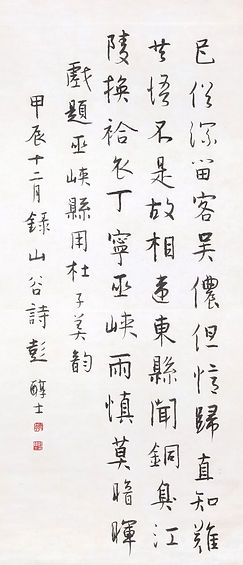 巴俗深留客吳儂但憶歸直知難
共語不是故相違東縣聞銅臭江
陵換袷衣丁寧巫峽雨慎莫暗暉
戲題巫峽縣用杜子美韵
甲辰十二月錄山谷詩彭醇士